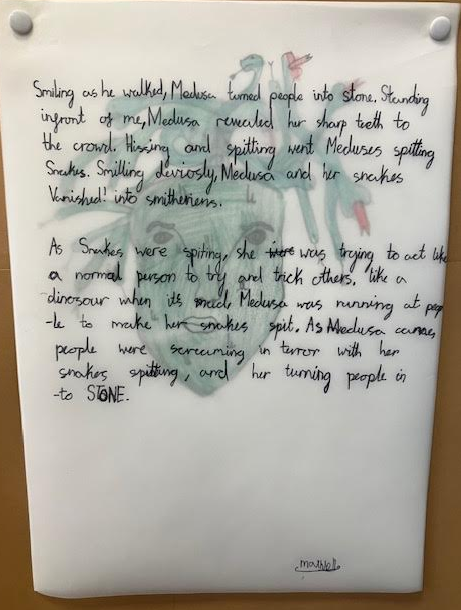 Smiling as he walked, Medusa turned people into stone. Standing
infront of me, Medusa revealed her sharp teeth to
the crowd. Hissing and spitting went Meduses spitting
Snakes. Smilling deviosly, Medusa and her snakes
Vanished! into smitheriens.
As Snakes were spiting, she were was trying to act like
a normal person to try and trick others. like a
dinosour when its mad, Medusa was running at peop
-le to make her snakes spit. As Medusa cames,
people were screaming in terror with her
snakes spitting, and her turning people in
-to STONE.